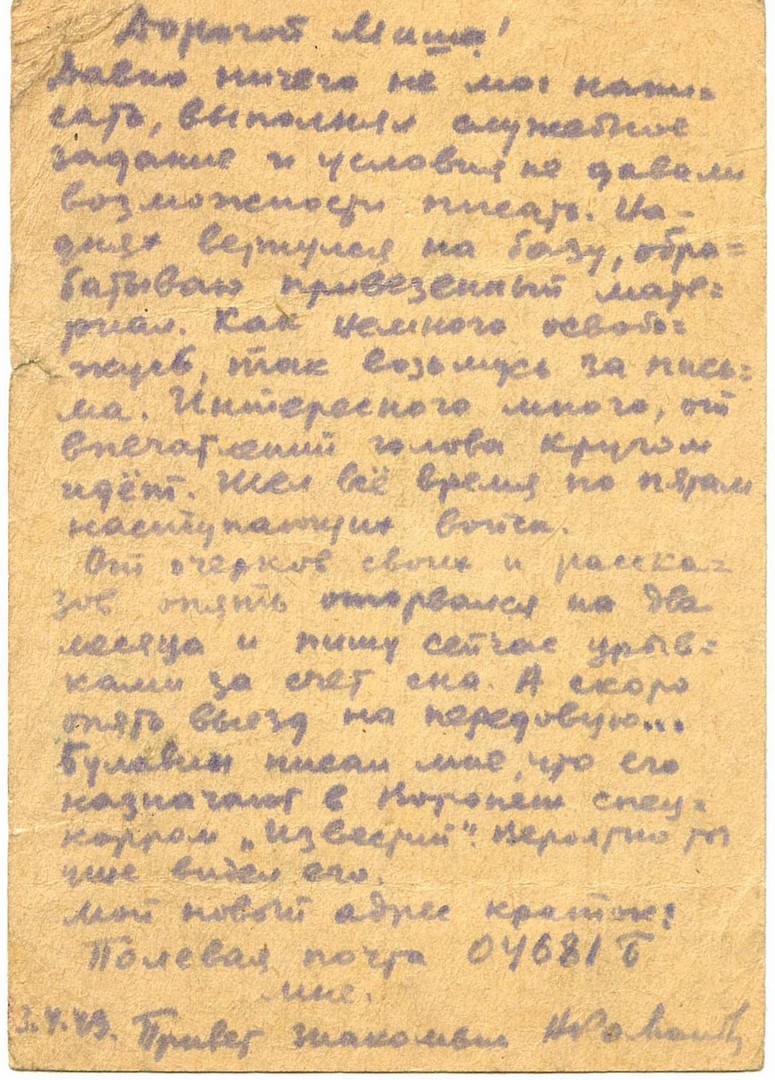 Дорогой Миша!
Давно ничего не мог напи=
сать, выполнял служебное
задание и условия не давали
возможности писать. На-
днях вернулся на базу, обра=
батываю привезенный мате=
риал. Как немного освобо=
жусь, так возьмусь за пись=
ма. Интересного много, от
впечатлений голова кругом
идёт. Шел всё время по пятам
наступающих войск.
От очерков своих и расска=
зов опять оторвался на два
месяца и пишу сейчас урыв=
ками за счет сна. А скоро
опять выезд на передовую...
Булавин писал мне, что его
назначают в Воронеж спец=
корром „Известий". Вероятно ты
уже видел его.
Мой новый адрес краток:
Полевая почта 04681 Б
мне.
3.4.43. Привет знакомым